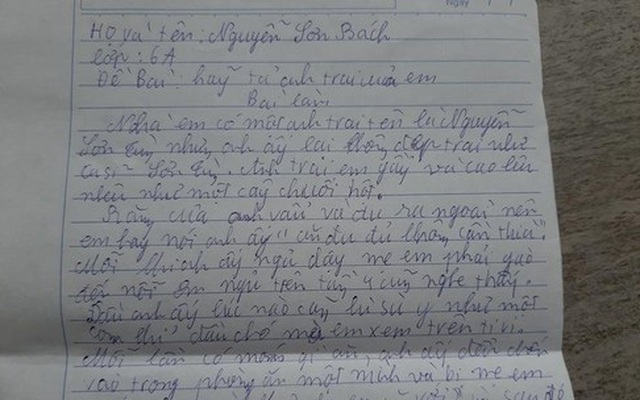 Ngày
Họ và tên: Nguyễn Sơn Bách
Lớp: 6A
Đề Bài: hãy tả anh trai của em
Bài làm
Nhà em có một anh trai tên là Nguyễn
Sơn Tùng nhưng anh ấy lại không đẹp trai như
ca sĩ Sơn Tùng. Anh trai em gầy và cao lêu
nghêu như một cây chuối hột.
Răng của anh vẩu và đưa ra ngoài nên
em hay nói anh ấy "ăn đu đủ không cần thìa".
Mỗi khi anh ấy ngủ dậy mẹ em phải gào
đến nỗi em ngủ trên tầng 4 cũng nghe thấy.
Đầu anh ấy lúc nào cũng bù xù y như một
con đầu chó mà em xem trên ti vi.
Mỗi lần có món gì ăn, anh ấy đều
vào trong phòng ăn một mình và bị mẹ em